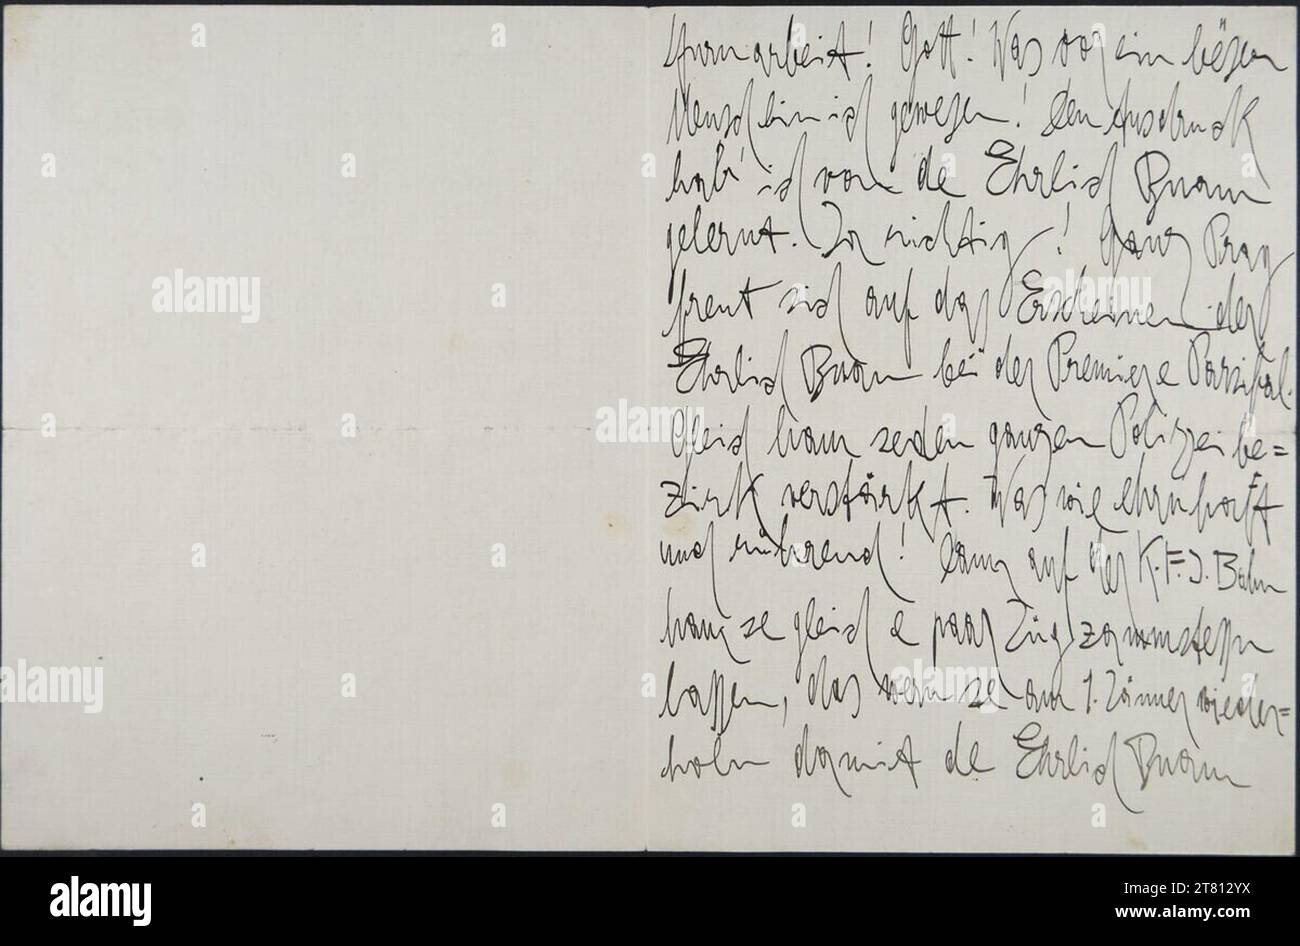 Hurnarbeit! Gott! Was vor ein bëser
Mensch bin ich gewesen! Den Ausdruck
hab' ich von de Ehrlich Buam
gelernt. Ja richtig! Ganz Prag
freut sich auf das Erscheinen der
Ehrlich Buam bei der Premiere Parsifal.
Gleich ham se den ganzen Polizzei be=
zirk verstärkt. Was wie ehrnhaft
und rührend! Dann auf der K.F.J. Bahn
ham se gleich e paar Züg zammstessn
lassen, das wern se am 1. Jänner wieder=
holn damit de Ehrlich Buam
alamy
2T812YX
www.alamy.com